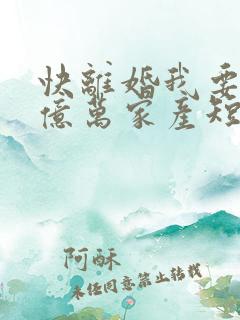 快離婚我要
億萬家產短
阿酥
未经同意禁止转载